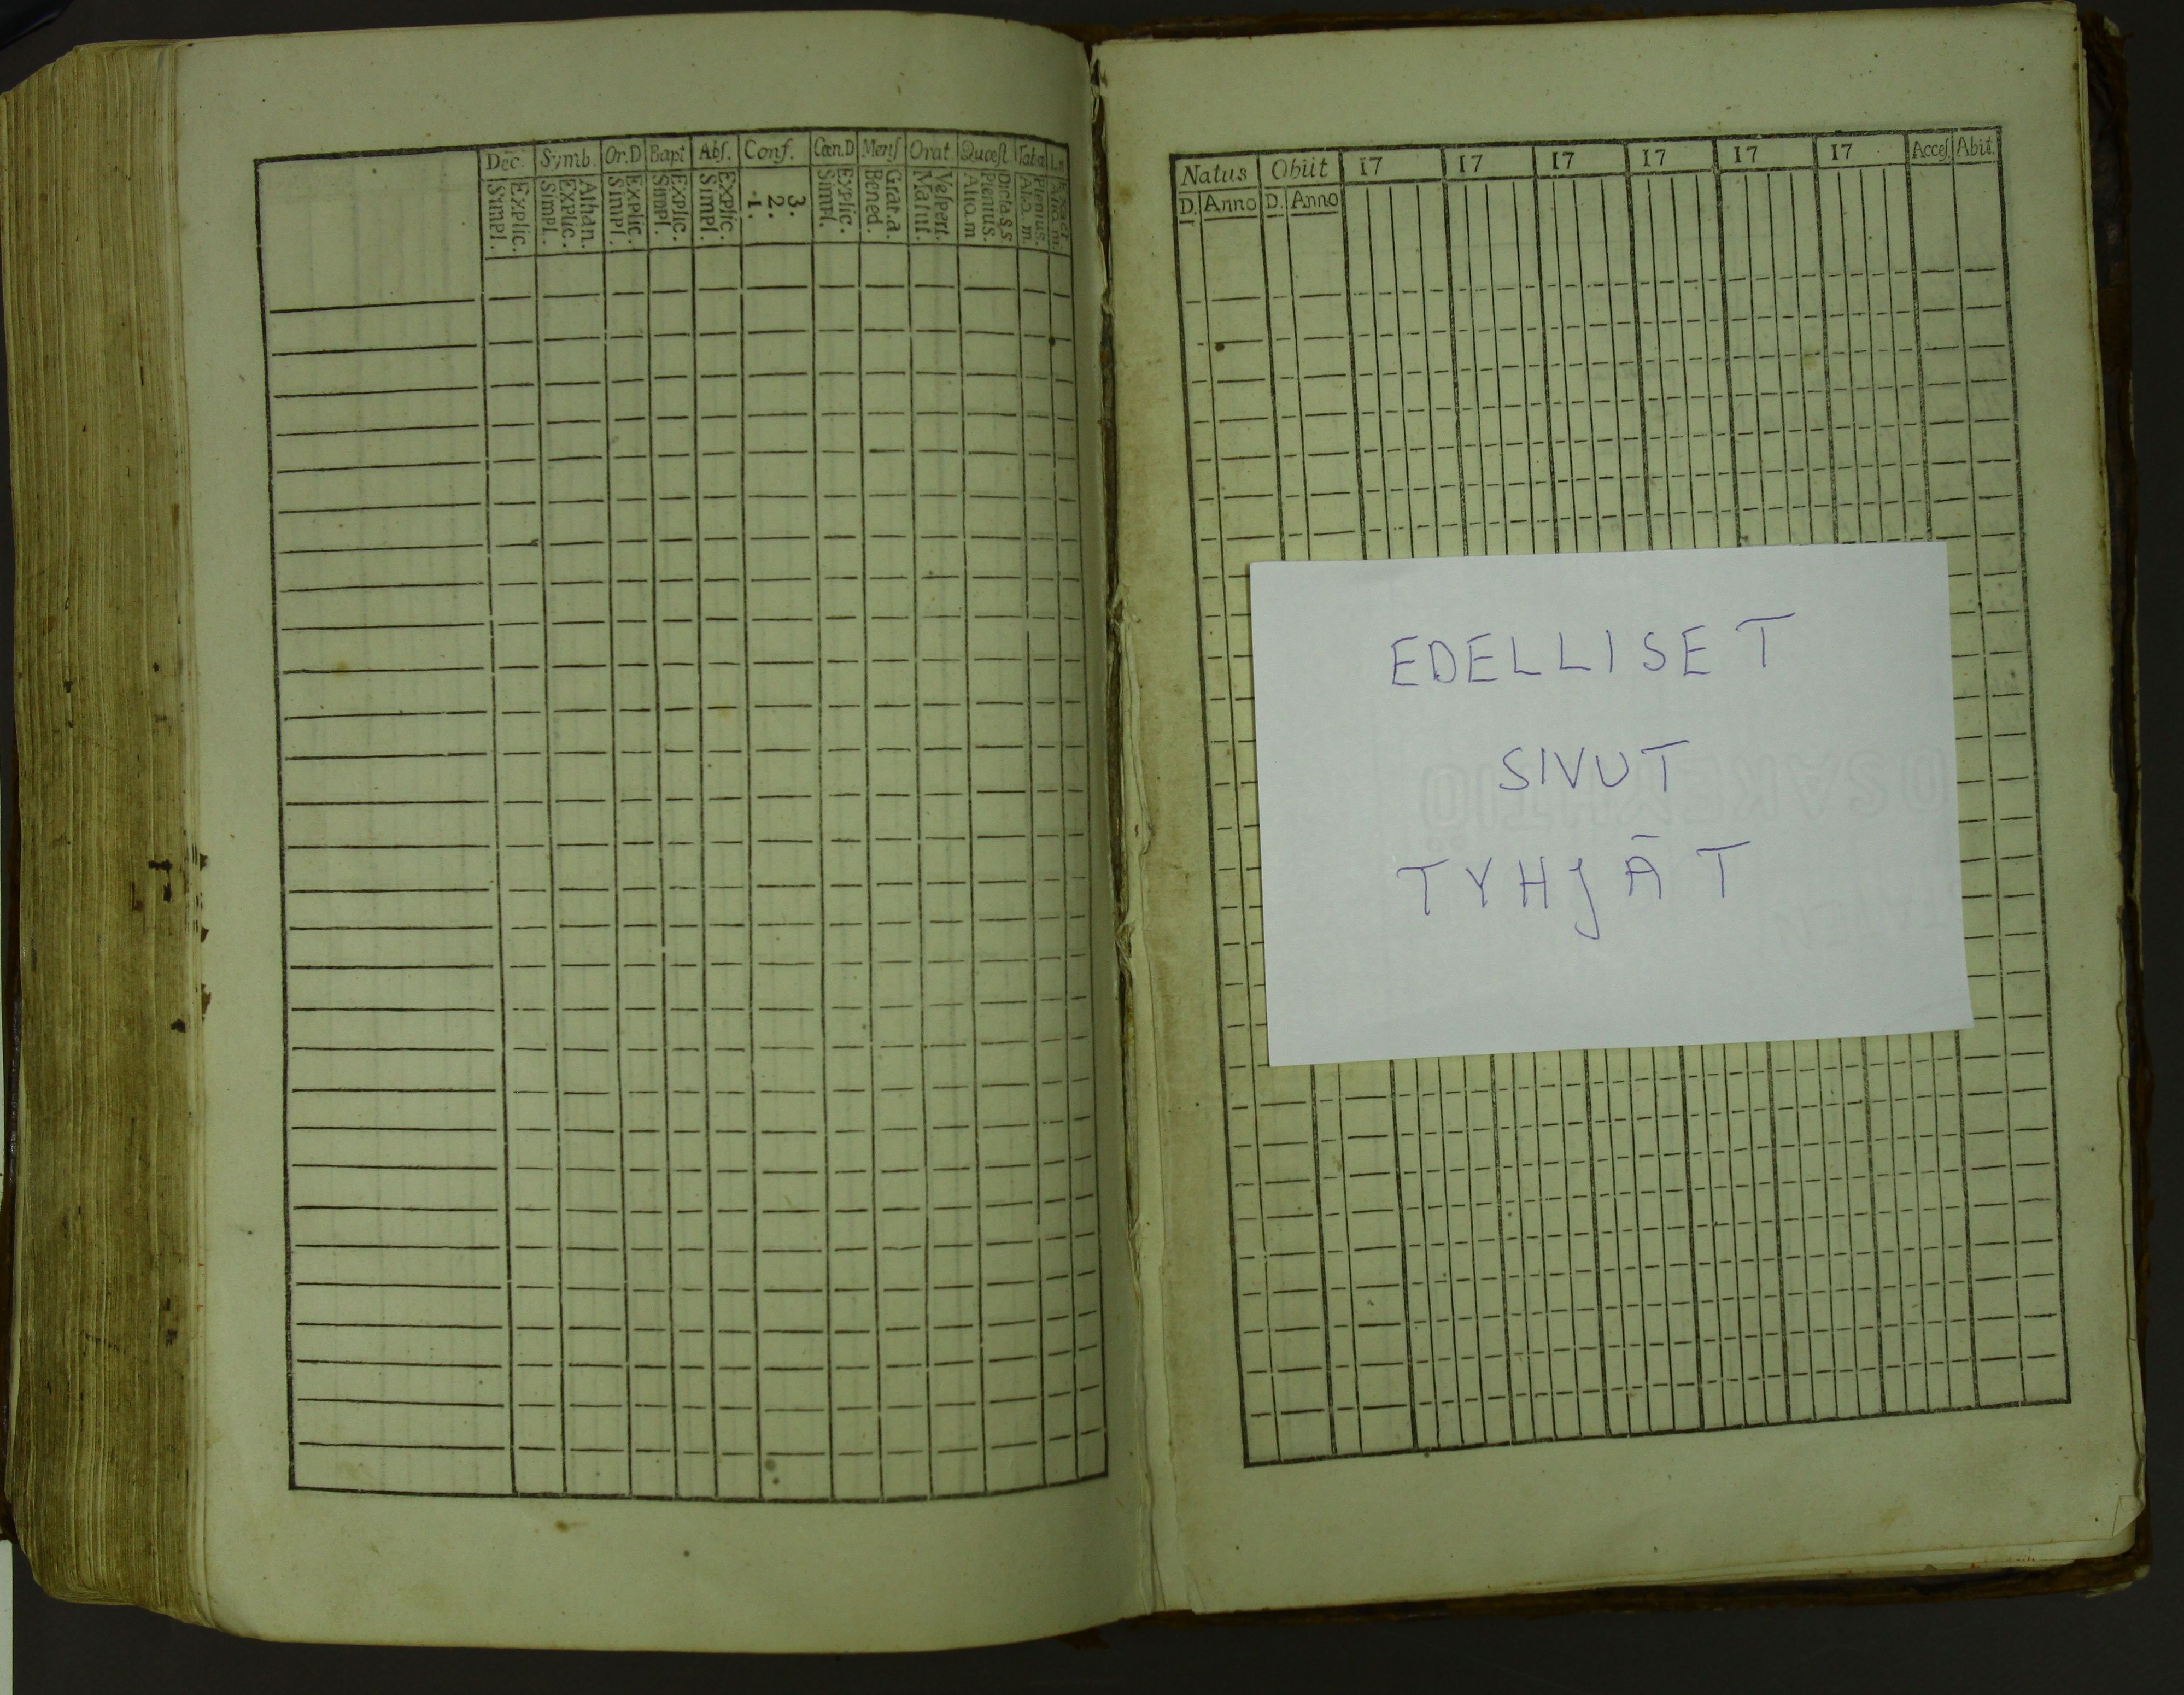 Dec. Symb. Or.D Bapt Abſ. Conf. Cœn.D Menſ Orat. Quœſt
Simpl. Explic. Simpl. Explic. Athan. Simpl. Explic. Simpl. Explic. Simpl. Explic. 1. 2. 3. Simpl. Explic. Bened. Grat.a. Matut. Veſpert. Alia.m Plenius. Dicta S.S Alia.m. Plenius.
Natus Obiit 17 17 17 17 17 17 Acceſ. Abiit.
D. Anno D. Anno
EDELLISET
SIVUT
TYHJÄT
OSAKEYHTIÖ